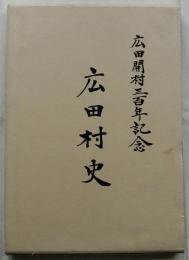 広田開村三百年記念
広田村史